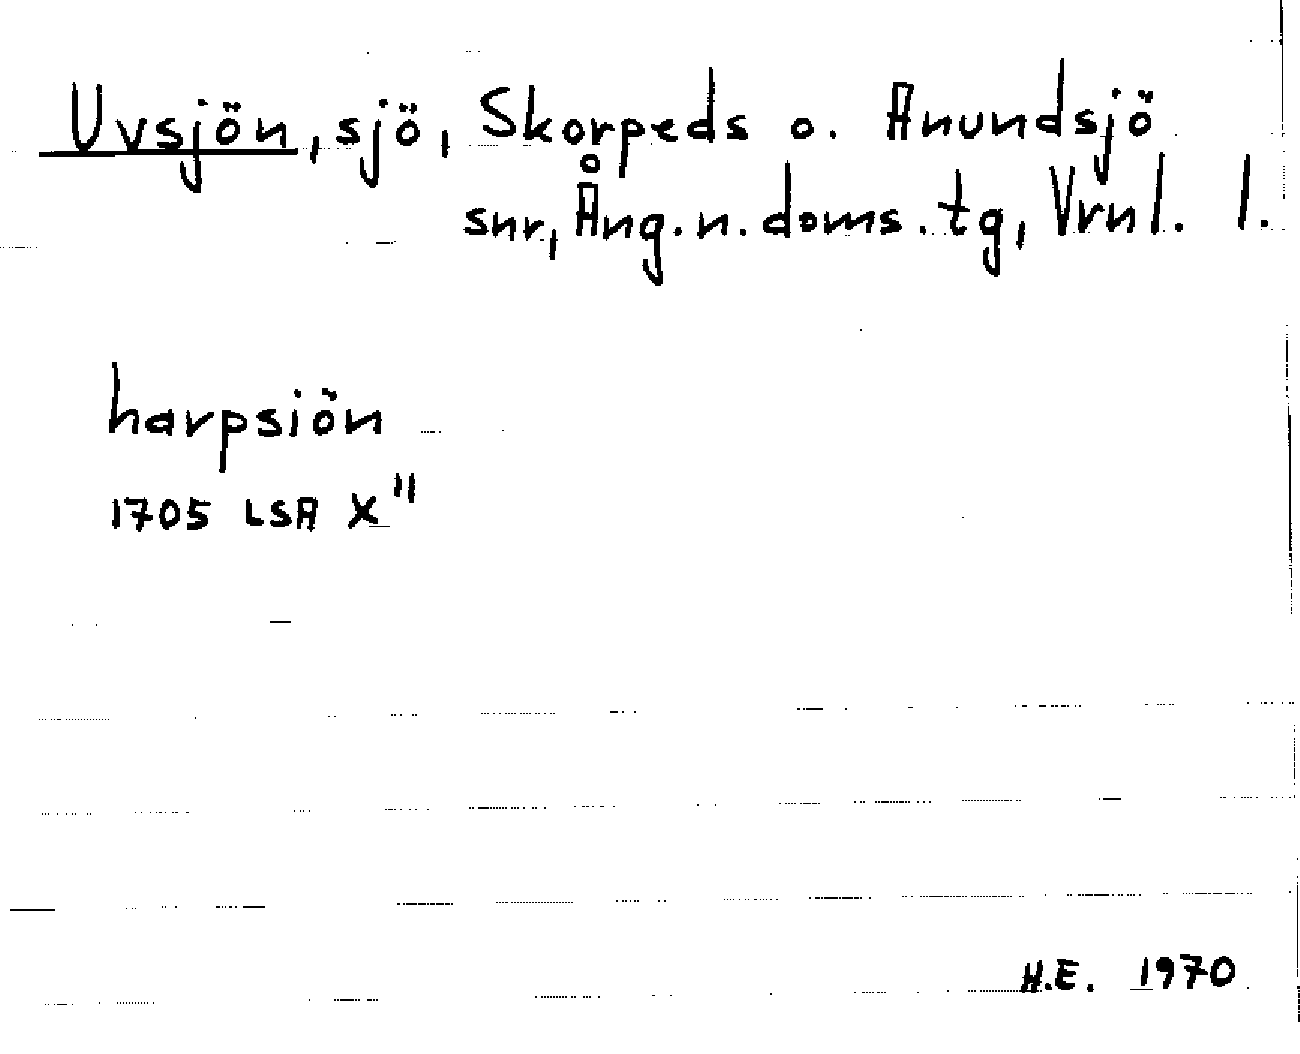 Uvsjön, sjö, Skorpeds o. Anundsjö
snr, Ång. n. doms. tg, Vrnl. l.
harpsiön
1705 LSA X"
H.E. 1970